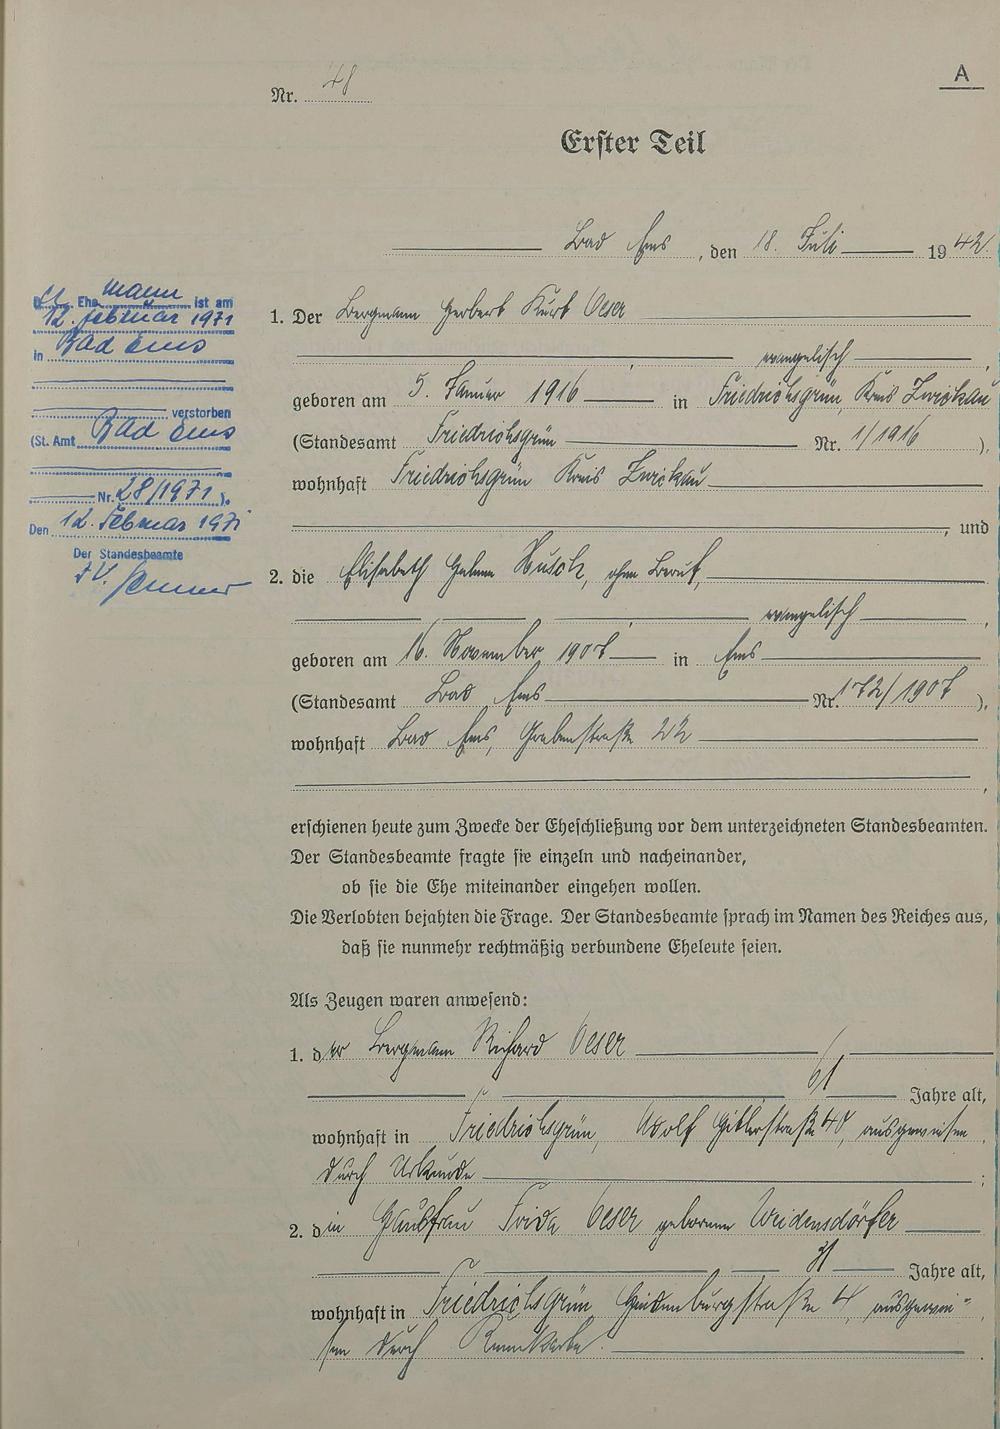 A
Nr. 48
Erster Teil
Bad Ems, den 18. Juli 1942
1. Der Bergmann Herbert Kurt Oeser
evangelisch,
geboren am 5. Januar 1916 in Friedrichsgrün, Kreis Zwickau
(Standesamt Friedrichsgrün Nr. 1/1916),
wohnhaft Friedrichsgrün Kreis Zwickau
, und
2. die Elisabeth Helene Husch, ohne Beruf,
evangelisch,
geboren am 16. November 1907 in Ems
(Standesamt Bad Ems Nr. 172/1907),
wohnhaft Bad Ems, Grabenstraße 22
,
erschienen heute zum Zwecke der Eheschließung vor dem unterzeichneten Standesbeamten.
Der Standesbeamte fragte sie einzeln und nacheinander,
ob sie die Ehe miteinander eingehen wollen.
Die Verlobten bejahten die Frage. Der Standesbeamte sprach im Namen des Reiches aus,
daß sie nunmehr rechtmäßig verbundene Eheleute seien.
Als Zeugen waren anwesend:
1. der Bergmann Richard Oeser
61 Jahre alt,
wohnhaft in Friedrichsgrün, Adolf Hitlerstraße 40, ausgewiesen
durch Urkunde ;
2. die Hausfrau Frida Oeser geborene Weidensdörfer
31 Jahre alt,
wohnhaft in Friedrichsgrün Hindenburgstraße 4, ausgewie-
sen durch Kennkarte.
Der Ehemann ist am
12. Februar 1971
in Bad Ems
verstorben
(St. Amt Bad Ems
Nr. 28/1971).
Den 12. Februar 1971
Der Standesbeamte
I.V.